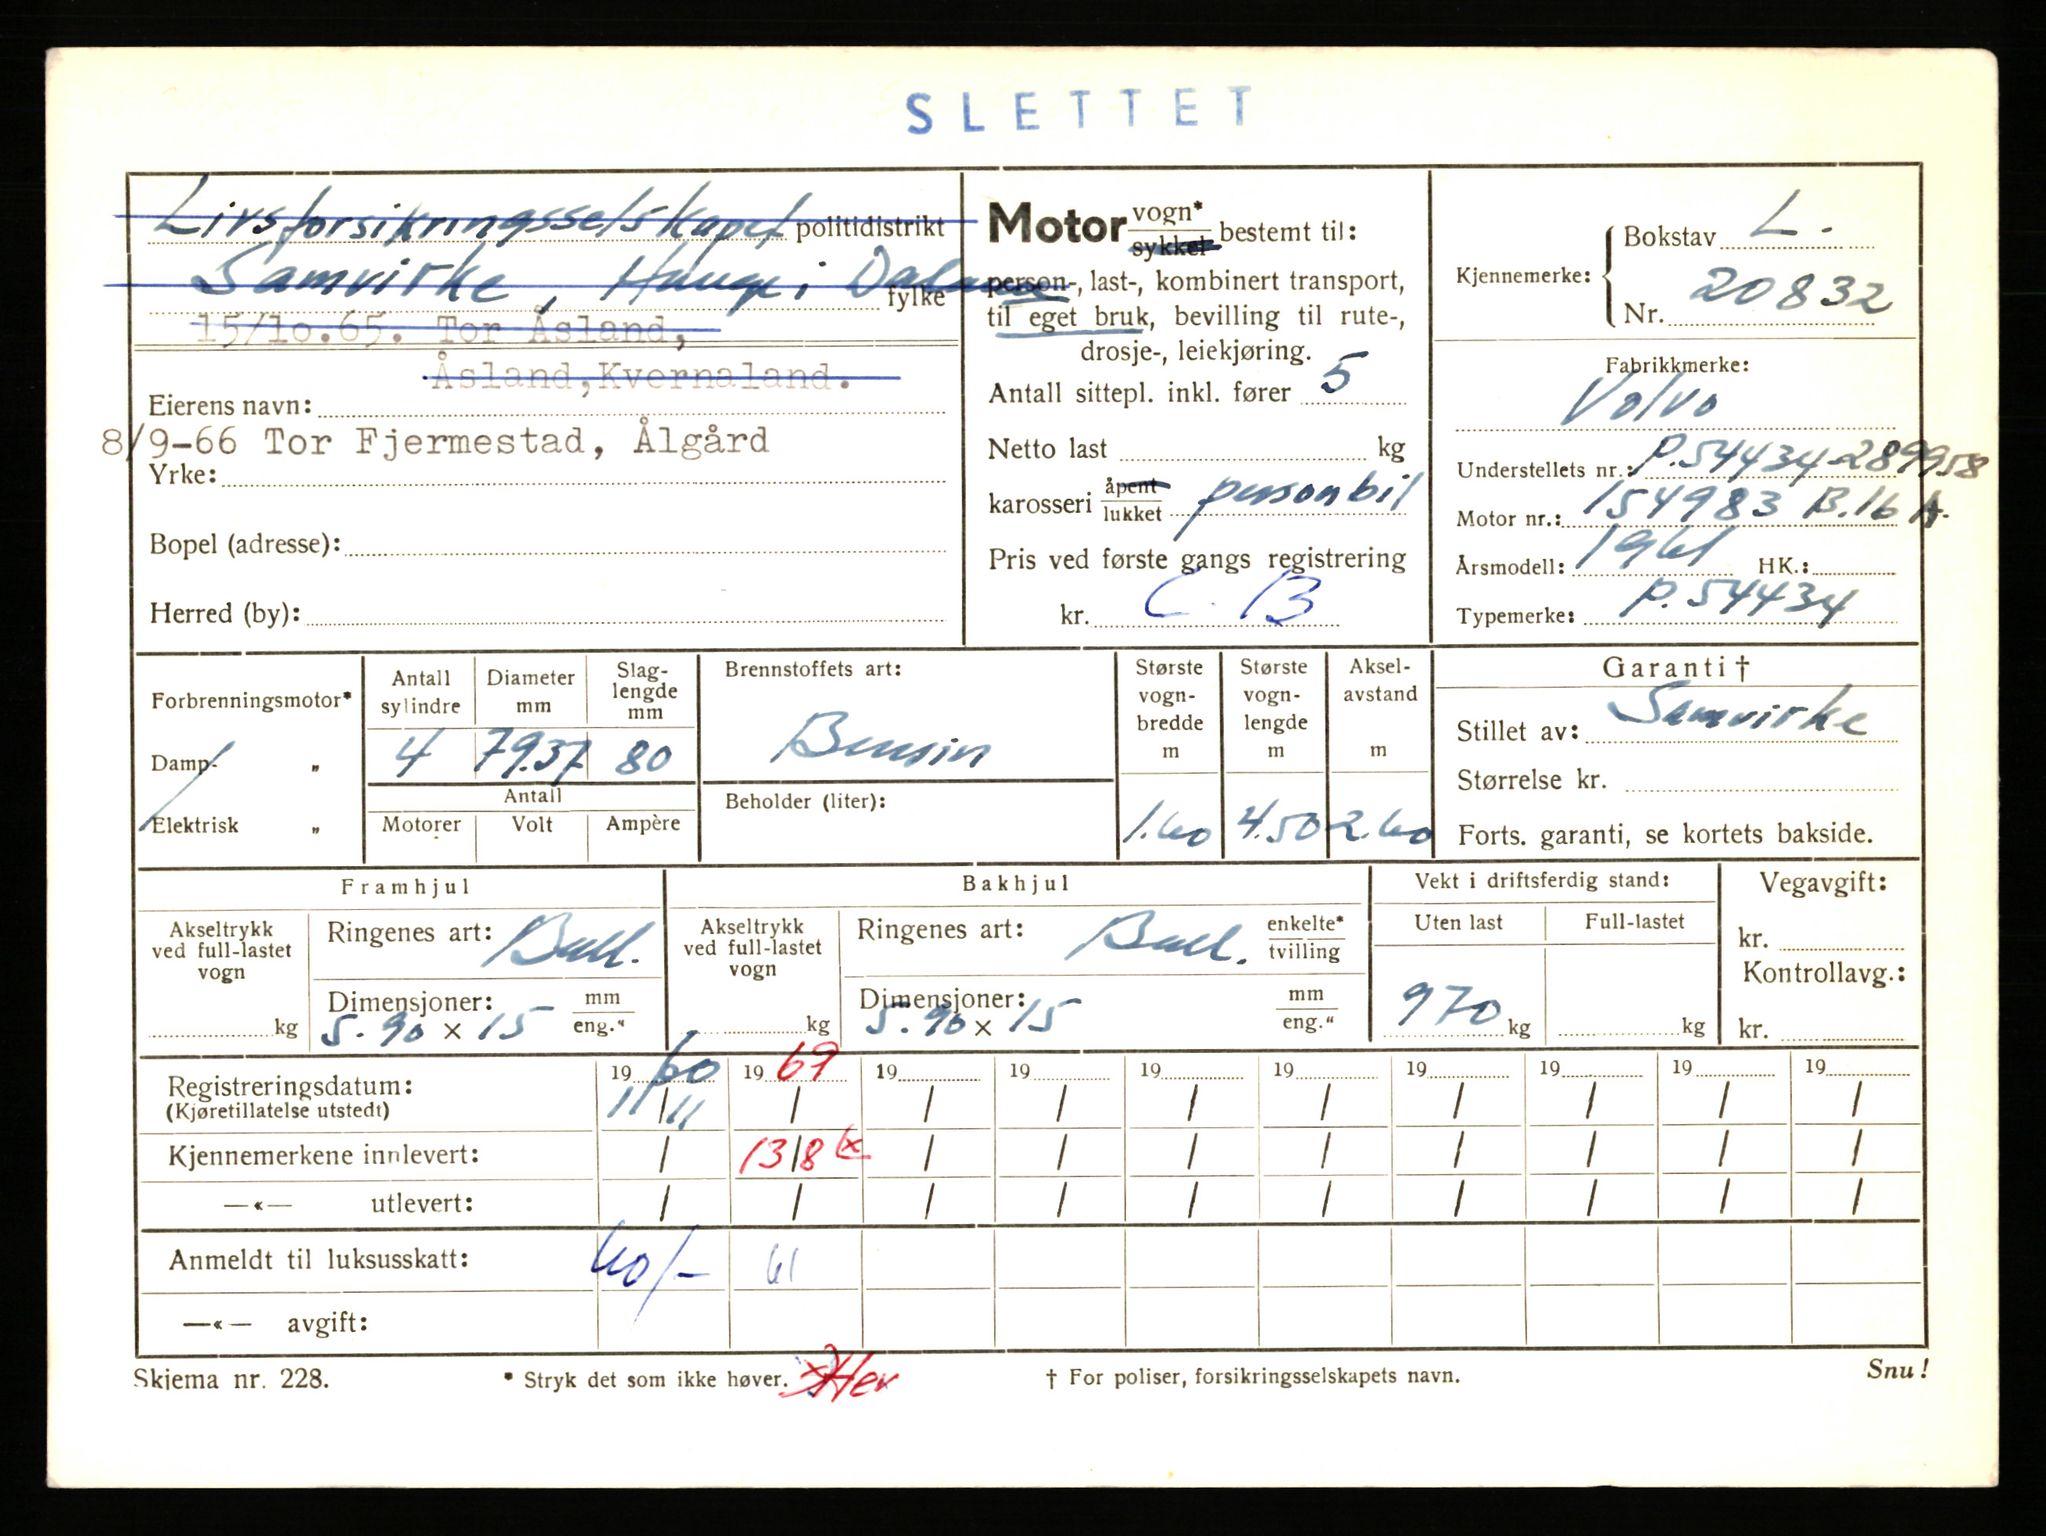 SLETTET
Livsforsikringsselskapet politidistrikt
Samvirke, Hauge i Dalane fylke
15/10.65. Tor Åsland,
Åsland, Kvernaland.
Eierens navn:
8/9-66 Tor Fjermestad, Ålgård
Yrke:
Bopel (adresse):
Herred (by):
Motor vogn* sykkel bestemt til:
person-, last-, kombinert transport,
til eget bruk, bevilling til rute-,
drosje-, leiekjøring.
Antall sittepl. inkl. fører 5
Netto last kg
karosseri åpent lukket personbil
Pris ved første gangs registrering
kr. C. B
Kjennemerke: Bokstav L.
Nr. 20832
Fabrikkmerke:
Volvo
Understellets nr.: P.54434-289958
Motor nr.: 154983 B.16 A.
Årsmodell: 1961 HK.:
Typemerke: P.54434
Forbrenningsmotor*
Damp- „
Elektrisk „
Antall sylindre Diameter mm Slag-lengde mm
4 79.37 80
Antall
Motorer Volt Ampère
Brennstoffets art:
Bensin
Beholder (liter):
Største vogn-bredde m Største vogn-lengde m Aksel-avstand m
1.60 4.50 2.60
Garanti †
Stillet av: Samvirke
Størrelse kr.
Forts. garanti, se kortets bakside.
Framhjul
Akseltrykk ved full-lastet vogn
kg
Ringenes art: Ball.
Dimensjoner: mm eng."
5.90 x 15
Bakhjul
Akseltrykk ved full-lastet vogn
kg
Ringenes art: Ball. enkelte* tvilling
Dimensjoner: mm eng."
5.90 x 15
Vekt i driftsferdig stand:
Uten last Full-lastet
970 kg kg
Vegavgift:
kr.
Kontrollavg.:
kr.
Registreringsdatum: 19 60 19 69 19 19 19 19 19 19 19 19
(Kjøretillatelse utstedt) 11/11 / / / / / / / / /
Kjennemerkene innlevert: / 13/8 x / / / / / / / /
—«— utlevert: / / / / / / / / / /
Anmeldt til luksusskatt: 60/- 61
—«— avgift:
Skjema nr. 228. * Stryk det som ikke høver. † For poliser, forsikringsselskapets navn. Snu!